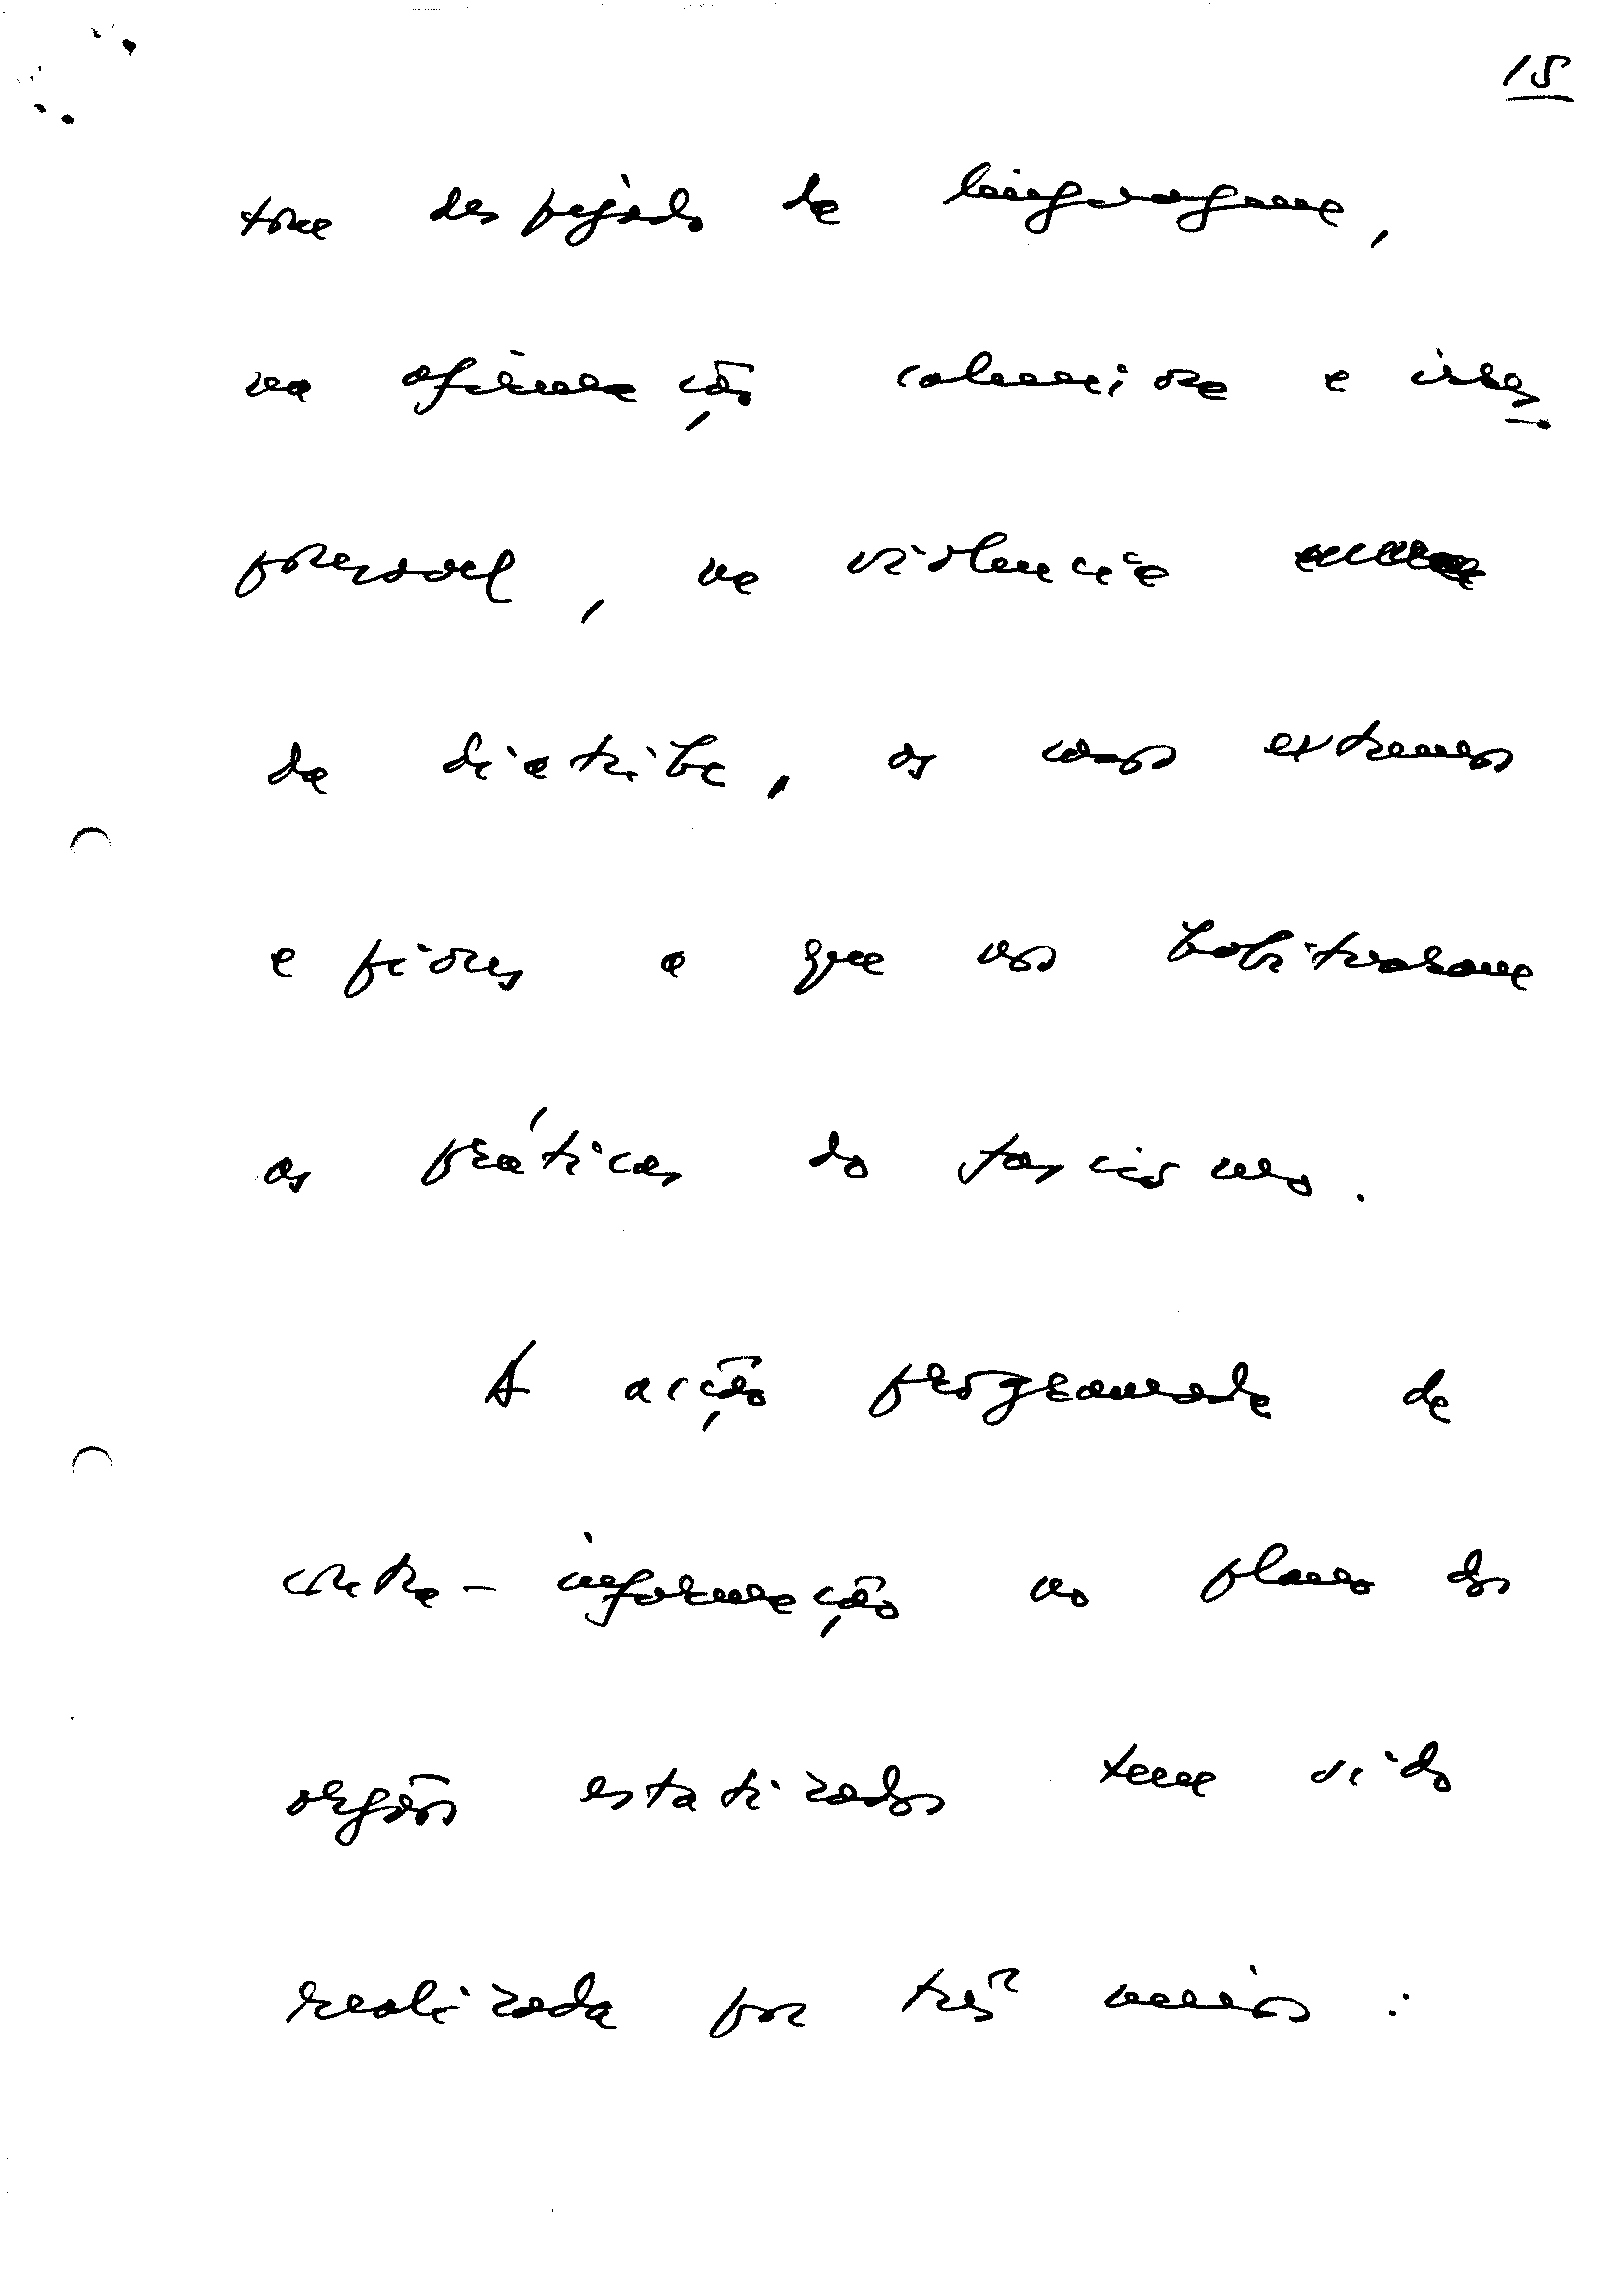 15
tom despejado da linguagem,
na afirmação caluniosa e irres
ponsável, na violência
da diatribe, os casos extremos
e piores a que nos habituaram
as práticas do fascismo.
A acção programada de
contra-informação no plano dos
orgãos estatizados tem sido
realizada por três meios: